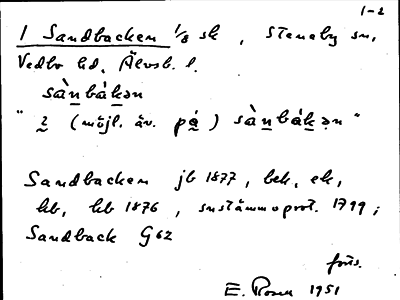 1-2
1 Sandbacken 1/8 sk , Steneby sn,
Vedbo hd, Älvsb. l.
sànbákən
" 2 (möjl. äv. på) sànbákən "
Sandbacken jb 1877, bek, ek,
hb, kb 1876 , 1799 ;
Sandback G 62
forts.
E. Rosen 1951